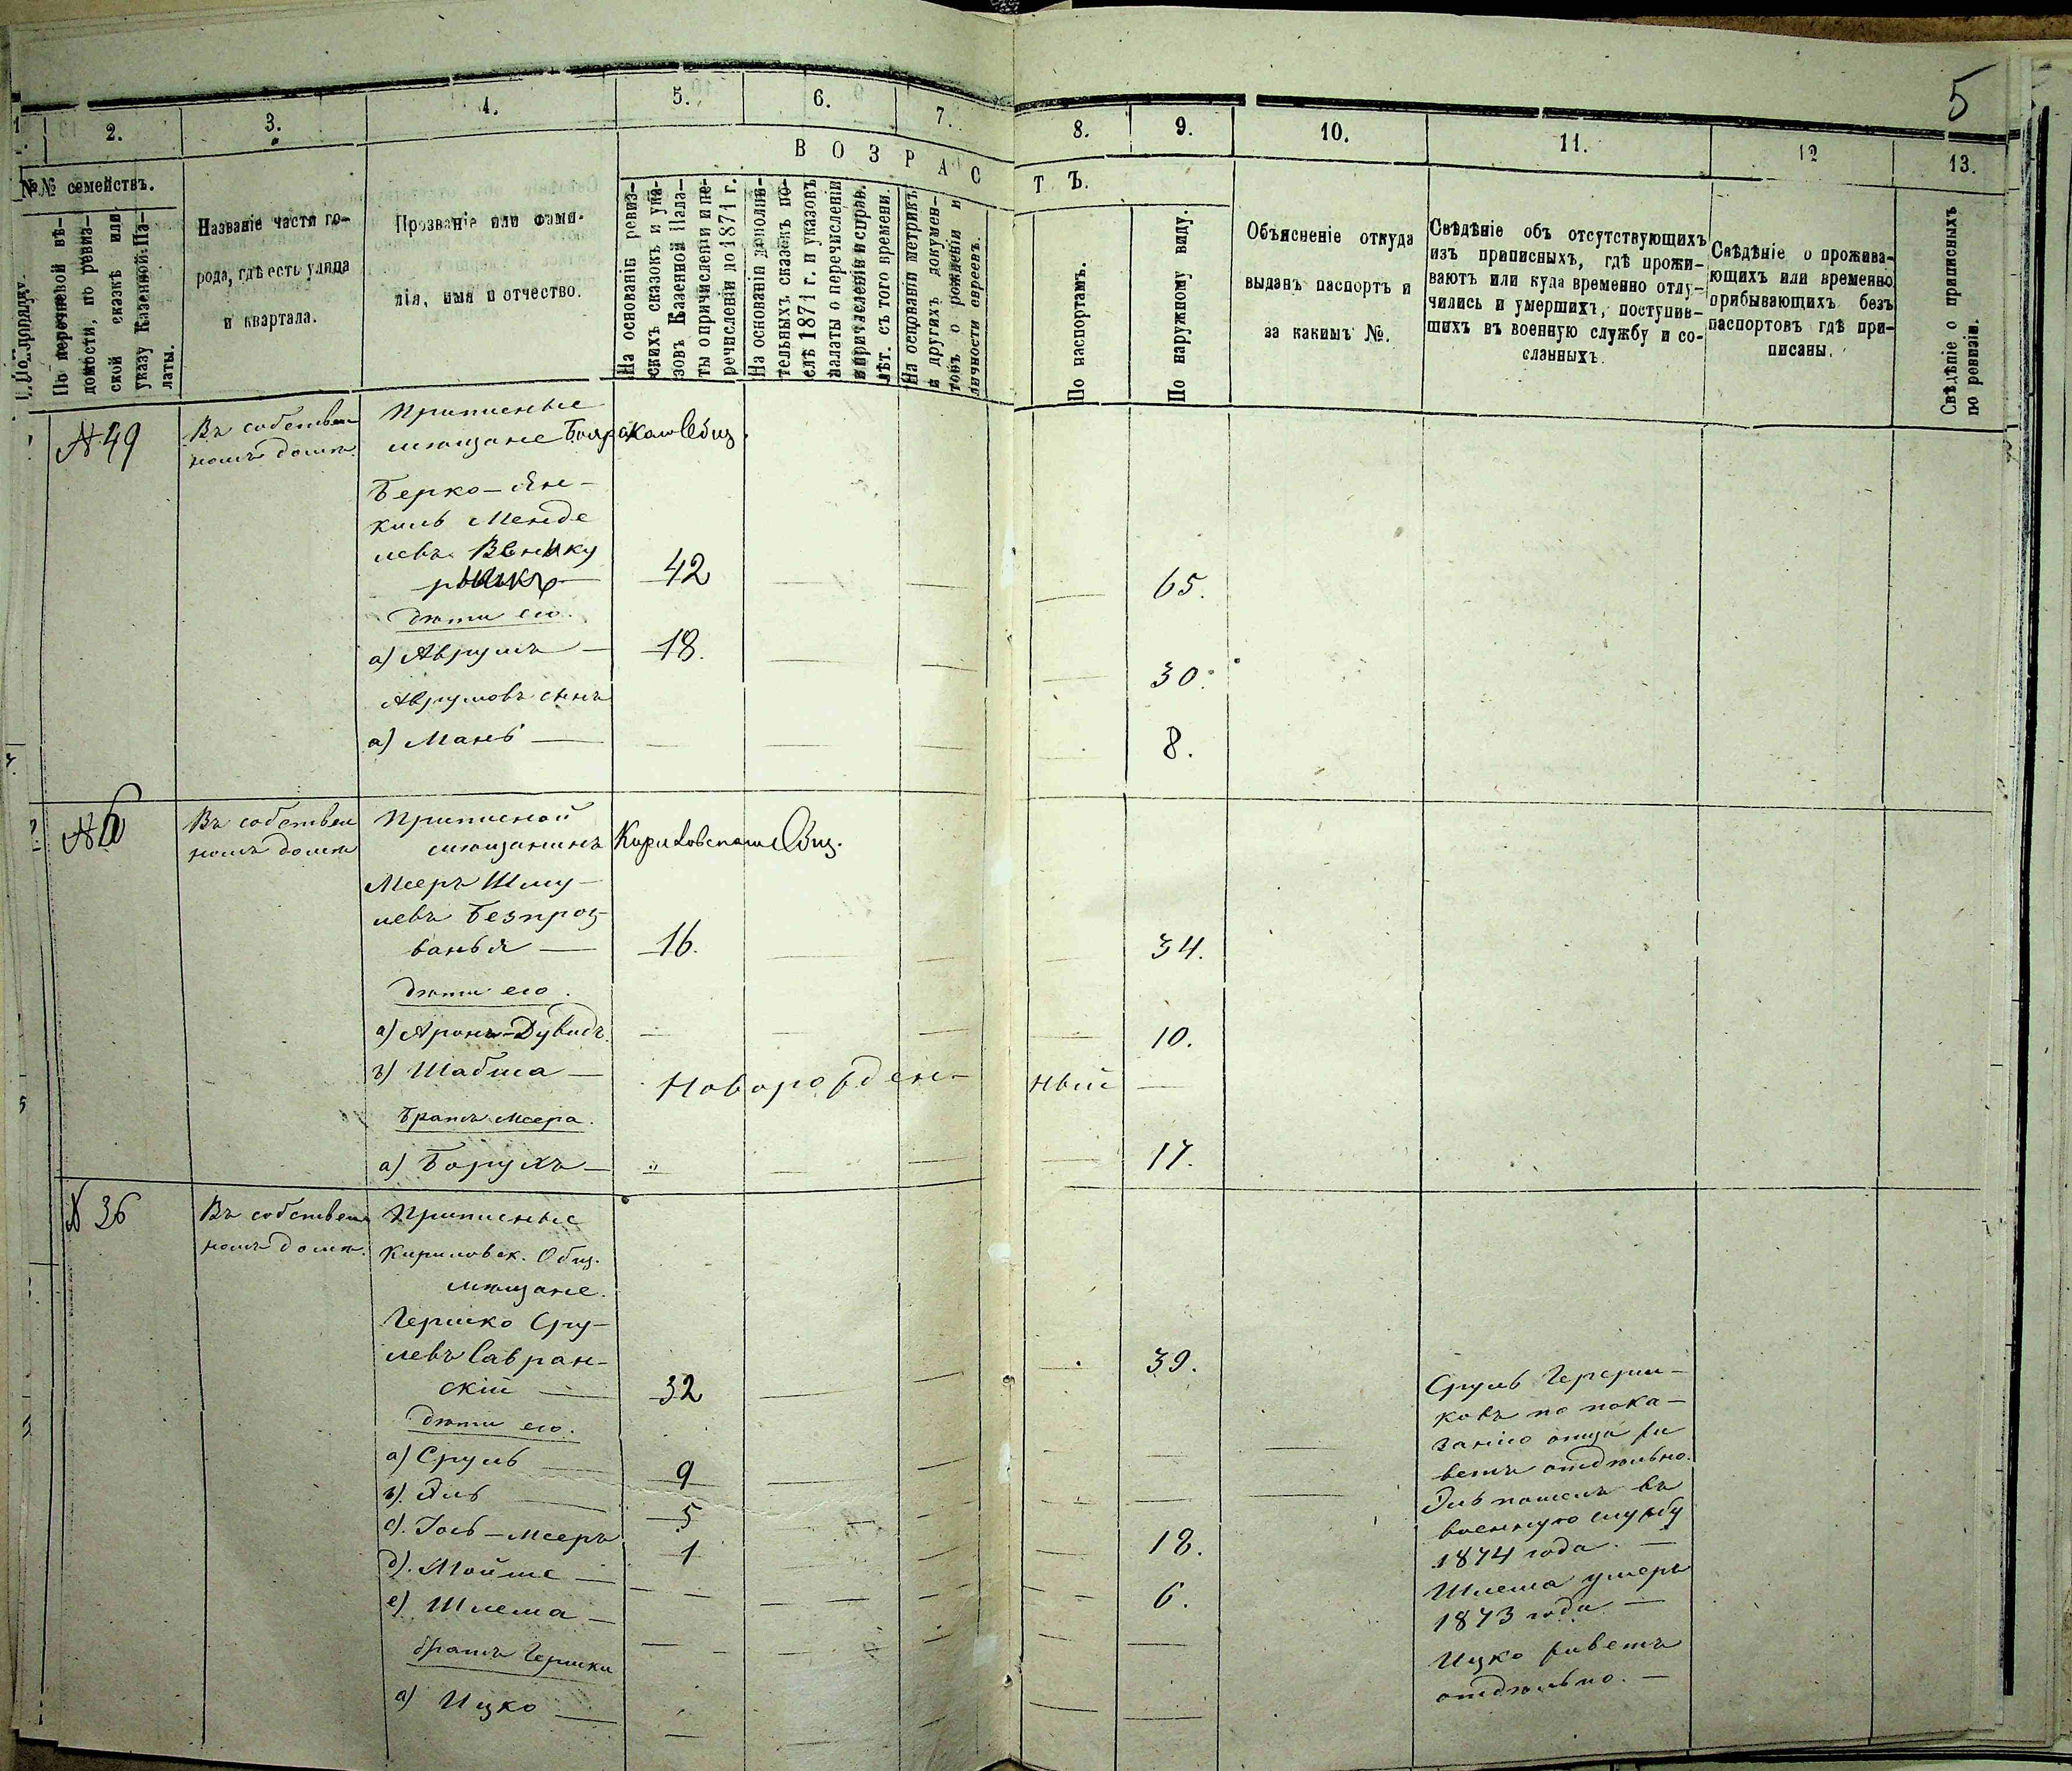 5
1
2.
3.
4.
5.
6.
7.
8.
9.
10.
11.
12
13.
В О З Р А С Т Ъ.
№№ семействъ.
По порядку.
По перечневой вѣ-
домости, по ревиз-
ской сказкѣ или
указу Казенной Па-
латы.
Названіе части го-
рода, гдѣ есть улица
и квартала.
Прозваніе или фами-
лія, имя и отчество.
На основаніи ревиз-
скихъ сказокъ и ука-
зовъ Казенной Пала-
ты о причисленіи и пе-
речисленіи до 1871 г.
На основаніи дополни-
тельныхъ сказокъ по-
слѣ 1871 г. и указовъ
палаты о перечисленіи
и причисленіи и справ.
лѣт. съ того времени.
На основаніи метрикъ
и другихъ докумен-
товъ о рожденіи и
личности евреевъ.
По паспортамъ.
По наружному виду.
Объясненіе откуда
выданъ паспортъ и
за какимъ №.
Свѣдѣніе объ отсутствующихъ
изъ приписныхъ, гдѣ прожи-
ваютъ или куда временно отлу-
чились и умершихъ, поступив-
шихъ въ военную службу и со-
сланныхъ.
Свѣдѣніе о прожива-
ющихъ или временно
прибывающихъ безъ
паспортовъ гдѣ при-
писаны.
Свѣдѣніе о приписныхъ
по ревизіи.
№ 49
Въ собствен
номъ домѣ
Приписные
мѣщане
Берко-Ян-
кель Менде
левъ
42
65.
дѣти его.
а) Аврумъ — 18.
30.
Аврумовъ сынъ
а) Мань —
8.
Въ собствен
номъ домѣ
Приписной
мѣщанинъ
Мееръ Шму-
левъ Безпроз-
ванья — 16.
34.
дѣти его.
а) Аронъ-Дувидъ
10.
в) Шабса — Новорожден-ный
Братъ Меера.
а) Борухъ —
17.
№ 36
Въ собствен
номъ домѣ.
Приписные
Кириловск. Общ.
мѣщане.
Гершко Сру-
левъ Савран-
скій — 32
39.
дѣти его.
а) Сруль — 9
в). Эль — 5
с). Іось-Мееръ 1
18.
д). Мойше —
6.
е) Шлема —
братъ Гершки
а) Ицко —
Сруль Герш-
ковъ по пока-
занію отца жи
ветъ отдѣльно.
Эль пошелъ въ
военную службу
1874 года. —
Шлема умеръ
1873 года —
Ицко живетъ
отдѣльно. —